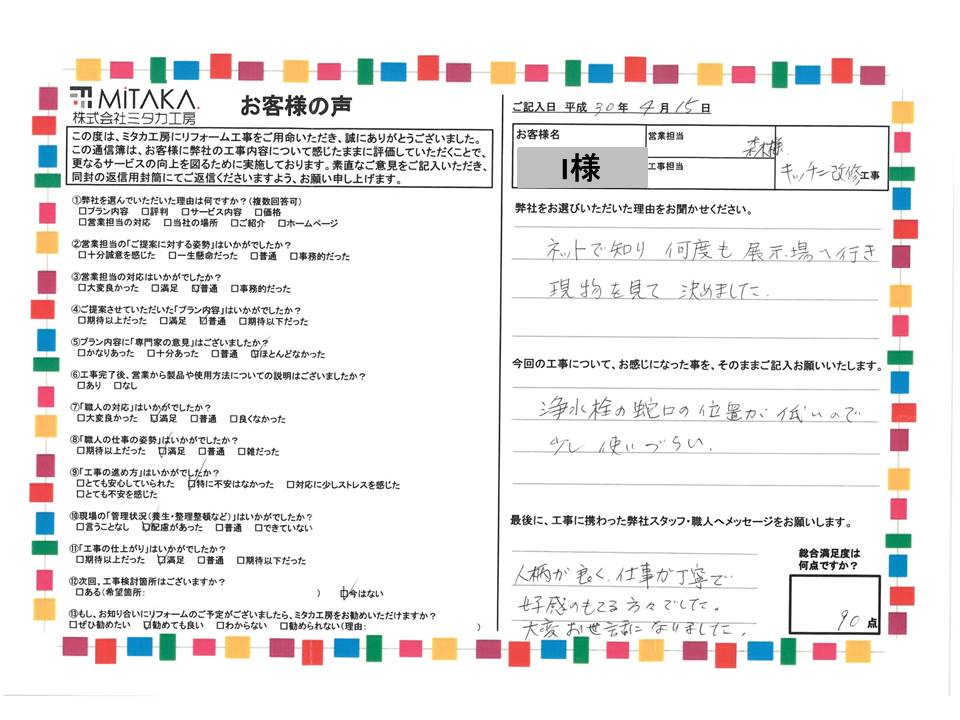 MiTAKA.
株式会社ミタカ工房
お客様の声
この度は、ミタカ工房にリフォーム工事をご用命いただき、誠にありがとうございました。
この通信簿は、お客様に弊社の工事内容について感じたままに評価していただくことで、
更なるサービスの向上を図るために実施しております。素直なご意見をご記入いただき、
同封の返信用封筒にてご返信くださいますよう、お願い申し上げます。
①弊社を選んでいただいた理由は何ですか?(複数回答可)
□プラン内容 □評判 □サービス内容 □価格
□営業担当の対応 □当社の場所 □ご紹介 □ホームページ
②営業担当の「ご提案に対する姿勢」はいかがでしたか?
□十分誠意を感じた □一生懸命だった □普通 □事務的だった
③営業担当の対応はいかがでしたか?
□大変良かった □満足 ☑普通 □事務的だった
④ご提案させていただいた「プラン内容」はいかがでしたか?
□期待以上だった □満足 ☑普通 □期待以下だった
⑤プラン内容に「専門家の意見」はございましたか?
□かなりあった □十分あった □普通 ☑ほとんどなかった
⑥工事完了後、営業から製品や使用方法についての説明はございましたか?
□あり □なし
⑦「職人の対応」はいかがでしたか?
□大変良かった ☑満足 □普通 □良くなかった
⑧「職人の仕事の姿勢」はいかがでしたか?
□期待以上だった ☑満足 □普通 □雑だった
⑨「工事の進め方」はいかがでしたか?
□とても安心していられた ☑特に不安はなかった □対応に少しストレスを感じた
□とても不安を感じた
⑩現場の「管理状況(養生・整理整頓など)」はいかがでしたか?
□言うことなし ☑配慮があった □普通 □できていない
⑪「工事の仕上がり」はいかがでしたか?
□期待以上だった ☑満足 □普通 □期待以下だった
⑫次回、工事検討箇所はございますか?
□ある(希望箇所: ) ☑今はない
⑬もし、お知り合いにリフォームのご予定がございましたら、ミタカ工房をお勧めいただけますか?
□ぜひ勧めたい ☑勧めても良い □わからない □勧められない(理由: )
ご記入日 平成 30年 4月 15日
お客様名 I様
営業担当 森様
工事担当
キッチン改修工事
弊社をお選びいただいた理由をお聞かせください。
ネットで知り 何度も 展示場へ行き
現物を見て 決めました.
今回の工事について、お感じになった事を、そのままご記入お願いいたします。
浄水栓の蛇口の位置が低いので
少し 使いづらい.
最後に、工事に携わった弊社スタッフ・職人へメッセージをお願いします。
人柄が良く、仕事が丁寧で
好感のもてる方々でした。
大変お世話になりました。
総合満足度は
何点ですか?
90点